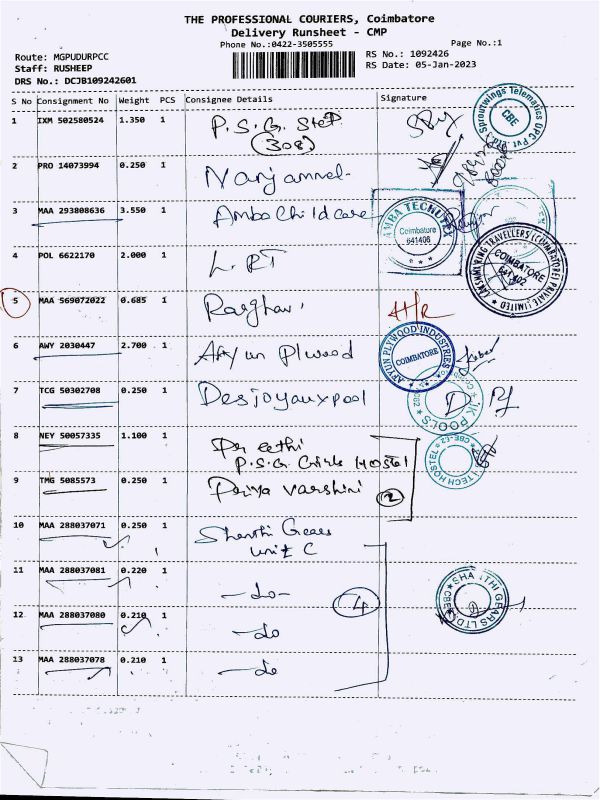 THE PROFESSIONAL COURIERS, Coimbatore
Delivery Runsheet - CMP
Phone No.:0422-3505555
Page No.:1
Route: MGPUDURPCC
Staff: RUSHEEP
DRS No.: DCJB109242601
RS No.: 1092426
RS Date: 05-Jan-2023
S No Consignment No Weight PCS Consignee Details Signature
1 IXM 502580524 1.350 1 P.S.G. Step
(308)
Sproutwings Telematics OPC Pvt Ltd.
CBE
2 PRO 14073994 0.250 1
3 MAA 293808636 3.550 1 Amba Child care
AMBA TECHUTEX
Coimbatore
641406
4 POL 6622170 2.000 1 L. RT
LAKSHMI RING TRAVELLERS (COIMBATORE) PRIVATE LIMITED
COIMBATORE
641 402
5 MAA 569072022 0.685 1 Raghavi
6 AWY 2030447 2.700 1 Afyun Plwood
AFYUN PLYWOOD INDUSTRIES
COIMBATORE
7 TCG 50302708 0.250 1 Desjoyauxpool
JK POOLS
8 NEY 50057335 1.100 1 Preethi
P.S.G. Girls HOSTEL
TECH HOSTEL
9 TMG 5085573 0.250 1 Priya varshini
2
10 MAA 288037071 0.250 1 Shanthi Gears
unit C
11 MAA 288037081 0.220 1 -do-
4
SHANTHI GEARS LTD
CBE
12 MAA 288037080 0.210 1 -do
13 MAA 288037078 0.210 1 -do